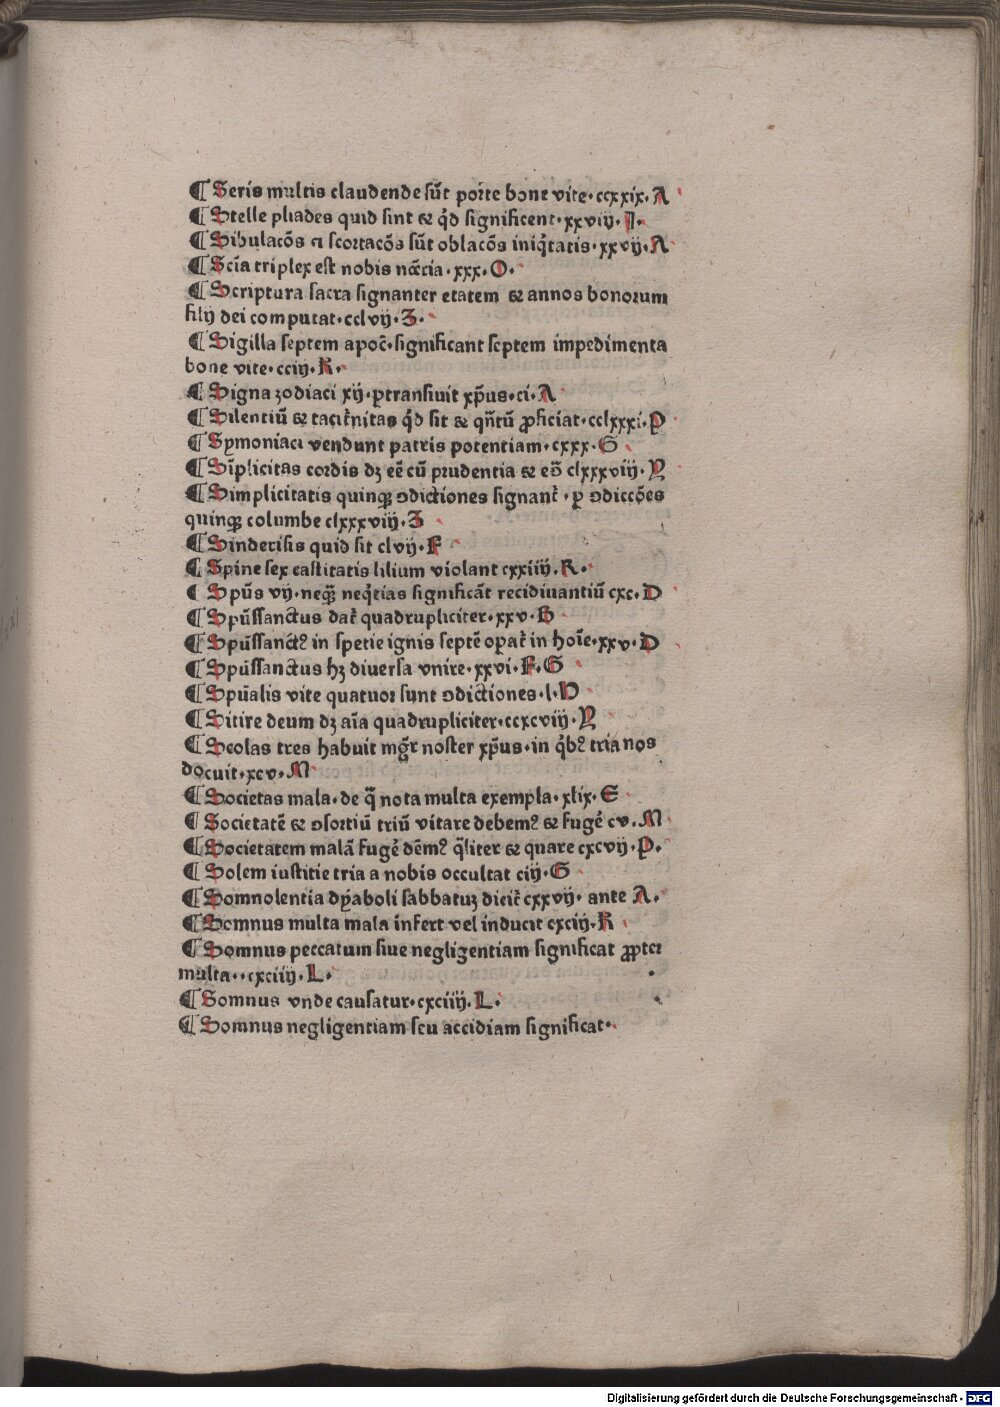 ¶ Seris multis claudende sūt porte bone vite·ccxxix·A
¶ Stelle pliades quid sint ⁊ qd̓ significent·xxviij·I·
¶ Sibulacōs ci scortacōs sūt oblacōs iniq̇tatis·xxvij·A
¶ Scīa triplex est nobis nc̄cīa·xxx·O·
¶ Scriptura sacra signanter etatem ⁊ annos bonorum
filij dei computat·cclvij·Z·
¶ Sigilla septem apoc̄·significant septem impedimenta
bone vite·cciij·K·
¶ Signa zodiaci xij·ꝑtransiuit xp̄us·ci·A
¶ Silentiū ⁊ tacit̓nitas qd̓ sit ⁊ qn̄tū ꝓficiat·cclxxxi·P
¶ Symoniaci vendunt patris potentiam·cxxx·G
¶ Sīplicitas cordis dꝫ eē cū prudentia ⁊ eō clxxxviij·Y
¶ Simplicitatis quinqꝫ ꝯdictiones signant̓·ꝑ ꝯdiccōes
quinqꝫ columbe clxxxviij·Z
¶ Sinderisis quid sit clvij·F
¶ Spine sex castitatis lilium violant cxxiiij·R·
¶ Spūs vij·neqꝫ neq̇tias significāt recidiuantiū cxc·D
¶ Spūssanctus dat̓ quadrupliciter·xxv·B
¶ Spūssanctꝰ in spetie ignis septē oꝑat̓ in hoīe·xxv·D
¶ Spūssanctus hꝫ diuersa vnire·xxvi·F·G
¶ Spūalis vite quatuor sunt ꝯdictiones·l·H
¶ Sitire deum dꝫ aīa quadrupliciter·ccxcviij·Y
¶ Scolas tres habuit mḡr noster xp̄us·in q̇bꝰ tria nos
docuit·xcv·M
¶ Societas mala·de q̄ nota multa exempla·xlix·E
¶ Societatē ⁊ ꝯsortiū triū vitare debemꝰ ⁊ fuge̓ cv·M
¶ Societatem malā fuge̓ dēmꝰ q̄liter ⁊ quare cxcvij·P·
¶ Solem iustitie tria a nobis occultat ciij·G
¶ Somnolentia dyaboli sabbatuꝫ dicit̓ cxxvij· ante A·
¶ Somnus multa mala infert vel inducit cxciij·K
¶ Somnus peccatum siue negligentiam significat ꝓpter
multa··cxciiij·L·
¶ Somnus vnde causatur·cxciiij·L·
¶ Somnus negligentiam seu accidiam significat·
Digitalisierung gefördert durch die Deutsche Forschungsgemeinschaft - DFG